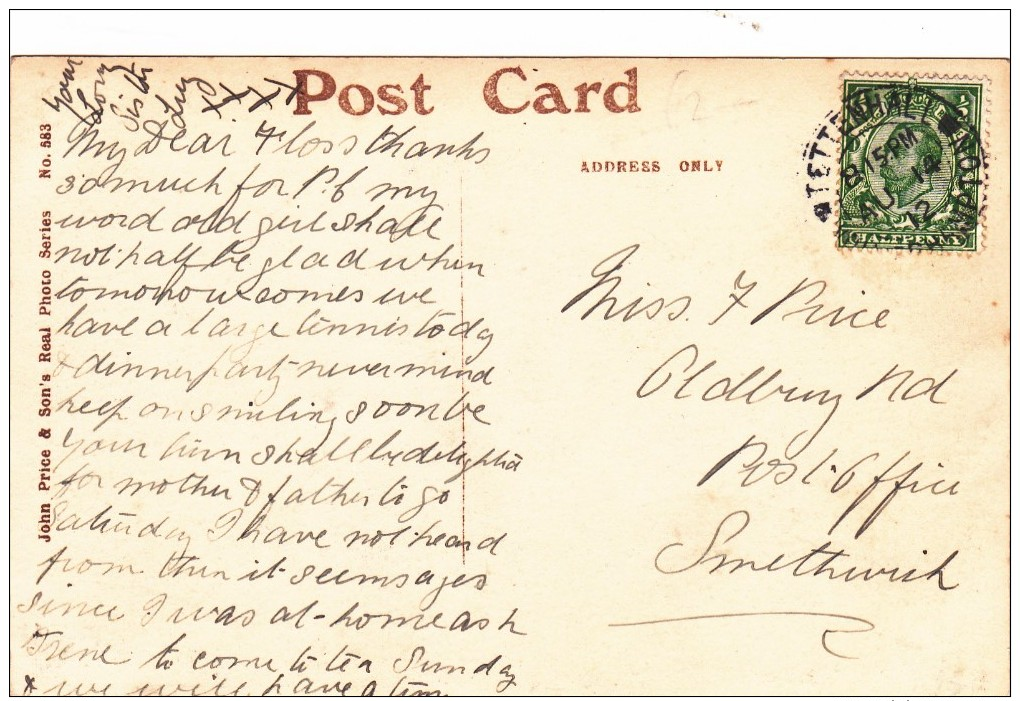 Post Card
ADDRESS ONLY
John Price & Son's Real Photo Series No. 583
TETTENHALL WOLVERHAMPTON
8 15 PM
AU 14
12
HALFPENNY
My Dear Floss thanks
so much for P.C my
word old girl shall
not half be glad when
tomorrow comes we
have a large tennis today
& dinner party never mind
keep on smiling soon be
your turn shall be delighted
for mother & father to go
Saturday I have not heard
from them it seems ages
since I was at home ask
Irene to come to tea Sunday
& we will have a time
Your
Lov
Sister
XXXX
Miss. F Price
Oldbury Rd
Post Office
Smethwick